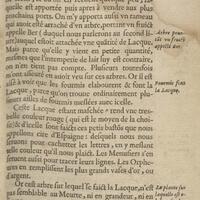 elle est apportée puis aprés à vendre aux plus
prochains ports. On m'y apporta aussi vn rameau
chargé d'icelle attachée d'vn arbre, portant vn fruict
appellé Ber (duquel nous parlerons au second li-
ure) lequel estoit attachée vne quãtité de Lacque.
Mais parce qu'elle y vient en petite quantité,
que l'intemperie de lair luy est contraire,
on n'en tient pas compte. Plusieurs toutesfois
m'ont asseuré en auoir veu sur ces arbres. Or il est
à voir que les fourmis elabourent de font la
Lacque, parce qu'on trouue ordinairement plu-
sieurs ailes de fourmis meslées auec icelle.
Ceste Lacque estant maschée rend vne tres-
belle couleur rouge (qui est le moyen de la choi-
sir) & d'icelle sont faicts ces petits bastõs que nous
appellons cire d'Espaigne: desquels nous nous
seruons pour cachetter les lettres, en y meslant
telle couleur qu'il nous plaist. Les Menusiers s'en
seruent aussi pour traicer leurs ouurages. Les Orphe-
ures en remplissent les plus grands vales d'or, ou
d'argent.
Or cest arbre sur lequel se faict la Lacque, n'est
pas semblable au Meurte, ni en grandeur, ni en
Arbre pour-
tãt vn fruict
appellé Ber.
Fourmis font
la Lacque.
La plante sur
laquelle est